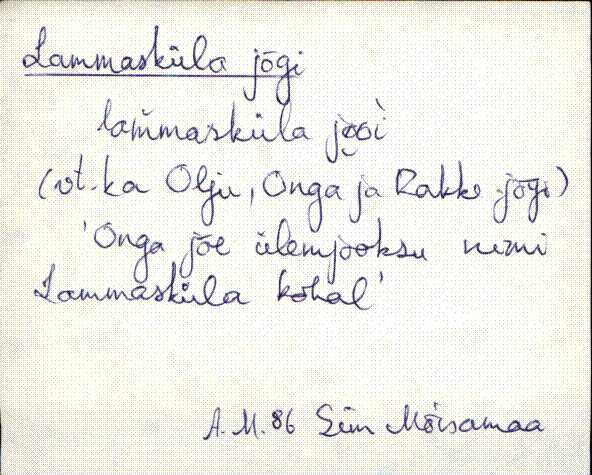 Lammasküla jõgi
lam̆masküla jo̬o̬ì
(vt. ka Olju, Onga ja Rakke jõgi)
'Onga jõe ülemjooksu nimi
Lammasküla kohal'
A.M. 86 Siim Mõisamaa